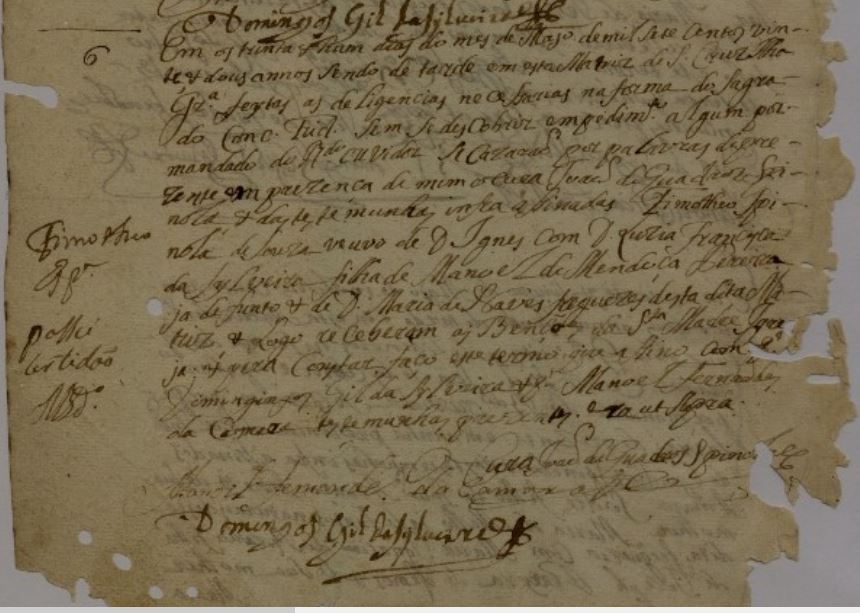 Domingos Gil da Sylveira
6
Em os trinta & hum dias do mes de Mayo de mil sete centos vin-
te & dous annos sendo de tarde em esta Matriz de S. Cruz
Gr.ª feytas as deligencias necessarias na forma do Sagra-
do Conc. Trid. sem se descobrir empedim.to algum por
mandado do R.do ouvidor se Cazaraõ por palavras de pre-
zente em prezenca de mim o Cura de Quadros Spi-
nola & das testemunhas infra asinadas Timotheo Spi-
nola de Souza veuvo de D Ignes com D. Francisca
da Sylveira filha de Manoel de Mendoça Pereira
ja defunto & de D. Maria de freguezes desta dita Ma-
triz & Logo receberam as Bencoẽs da S.ta Madre Igre-
ja & pera Constar faco este termo que asino com
Domingos Gil da Sylveira & Manoel Fernandes
da Camera testemunhas prezentes. era ut Supra.
Timotheo
passei
certidaõ
Cura de Quadros Spinola
Manoel Fernandes da Camara
Domingos Gil da Sylveira